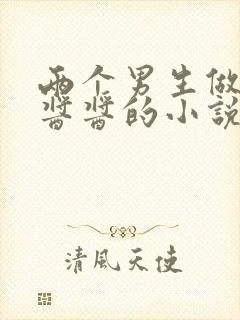 两个男生做
酱酱的小說
清風天使